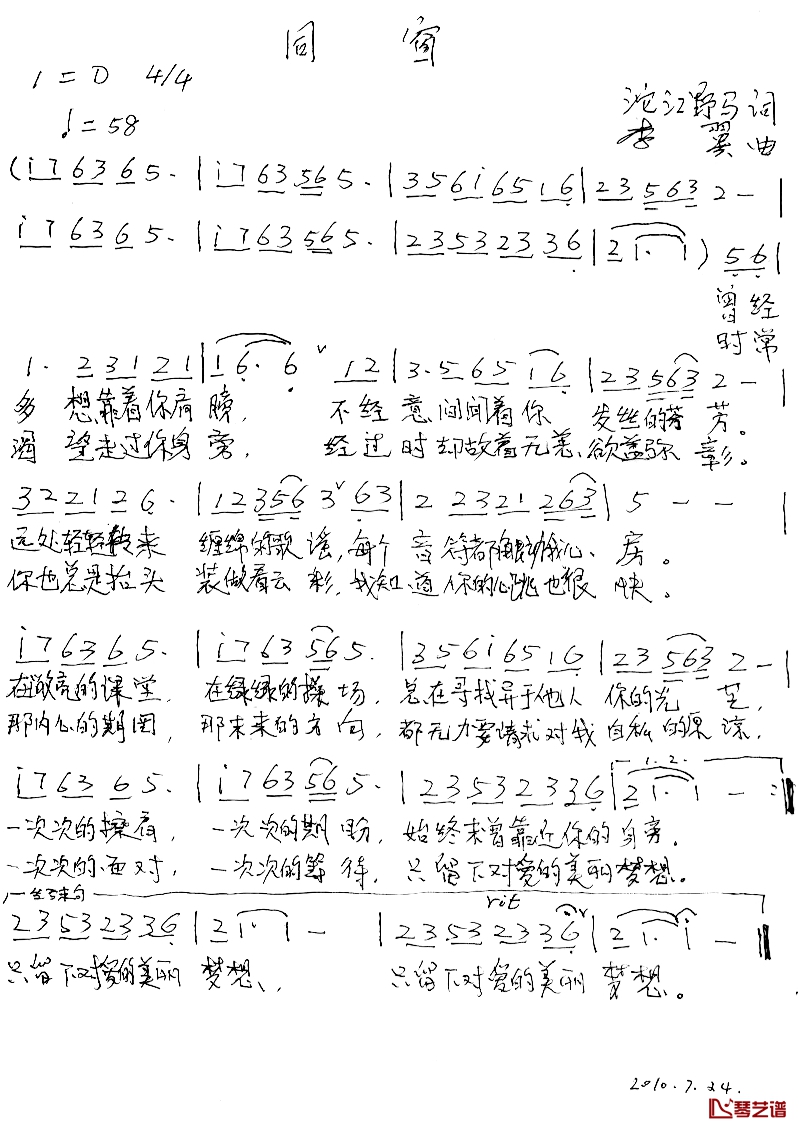 同窗
1=D 4/4
♩=58
沱江野马词
李翼曲
(i7 63 65· | i7 63 565· | 356i 6516 | 23 563 2 - |
i7 63 65· | i7 63 565· | 2353 2336 | 21· 1 ) 56 |
曾经
时常
1· 2 31 21 | 16· 6 ∨ 12 | 3·5 65 16 | 23 563 2 - |
多 想靠着你肩膀, 不经意间闻着你、发丝的芬芳。
渴望走过你身旁, 经过时却故着无恙、欲盖弥彰。
32 21 26· | 12 356 3∨ 63 | 2 2321 263 | 5 - - |
远处轻轻飘来 缠绵的歌谣,每个音符都触动我心房。
你也总是抬头 装做看云彩,我知道你的心跳也很快。
i7 63 65· | i7 63 565· | 356i 6516 | 23 563 2 - |
在敞亮的课堂, 在绿绿的操场, 总在寻找异于他人 你的光芒,
那内心的期图, 那未来的方向, 都无力要请求对我自私的原谅,
1. 2.
i7 63 65· | i7 63 565· | 2353 2336 | 21· 1 - :‖
一次次的擦肩, 一次次的期盼, 始终未曾靠近你的身旁.
一次次的面对, 一次次的等待, 只留下对爱的美丽梦想。
结束句 rit
2353 2336 | 21· 1 - | 2353 2336∨ | 21· 1 - ‖
只留下对爱的美丽 梦想、 只留下对爱的美丽 梦想。
2010.7.24.
琴艺谱